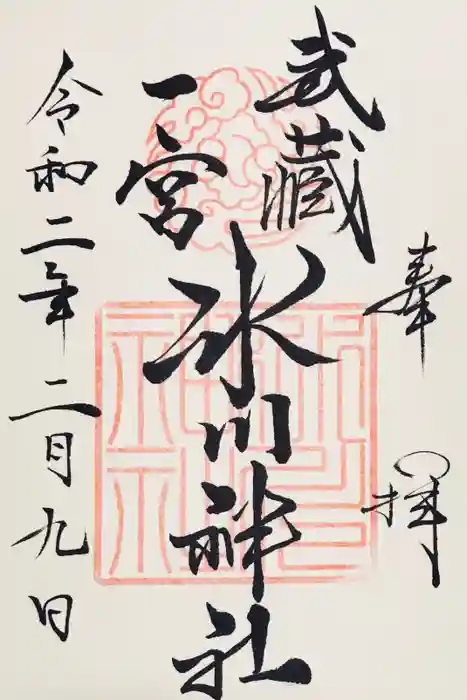 奉拝
武蔵
一宮
氷川神社
令和二年二月九日